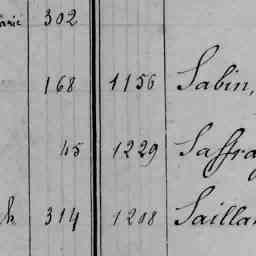 302
168 1156 Sabin,
45 1229 Saffra
h 314 1208 Sailla